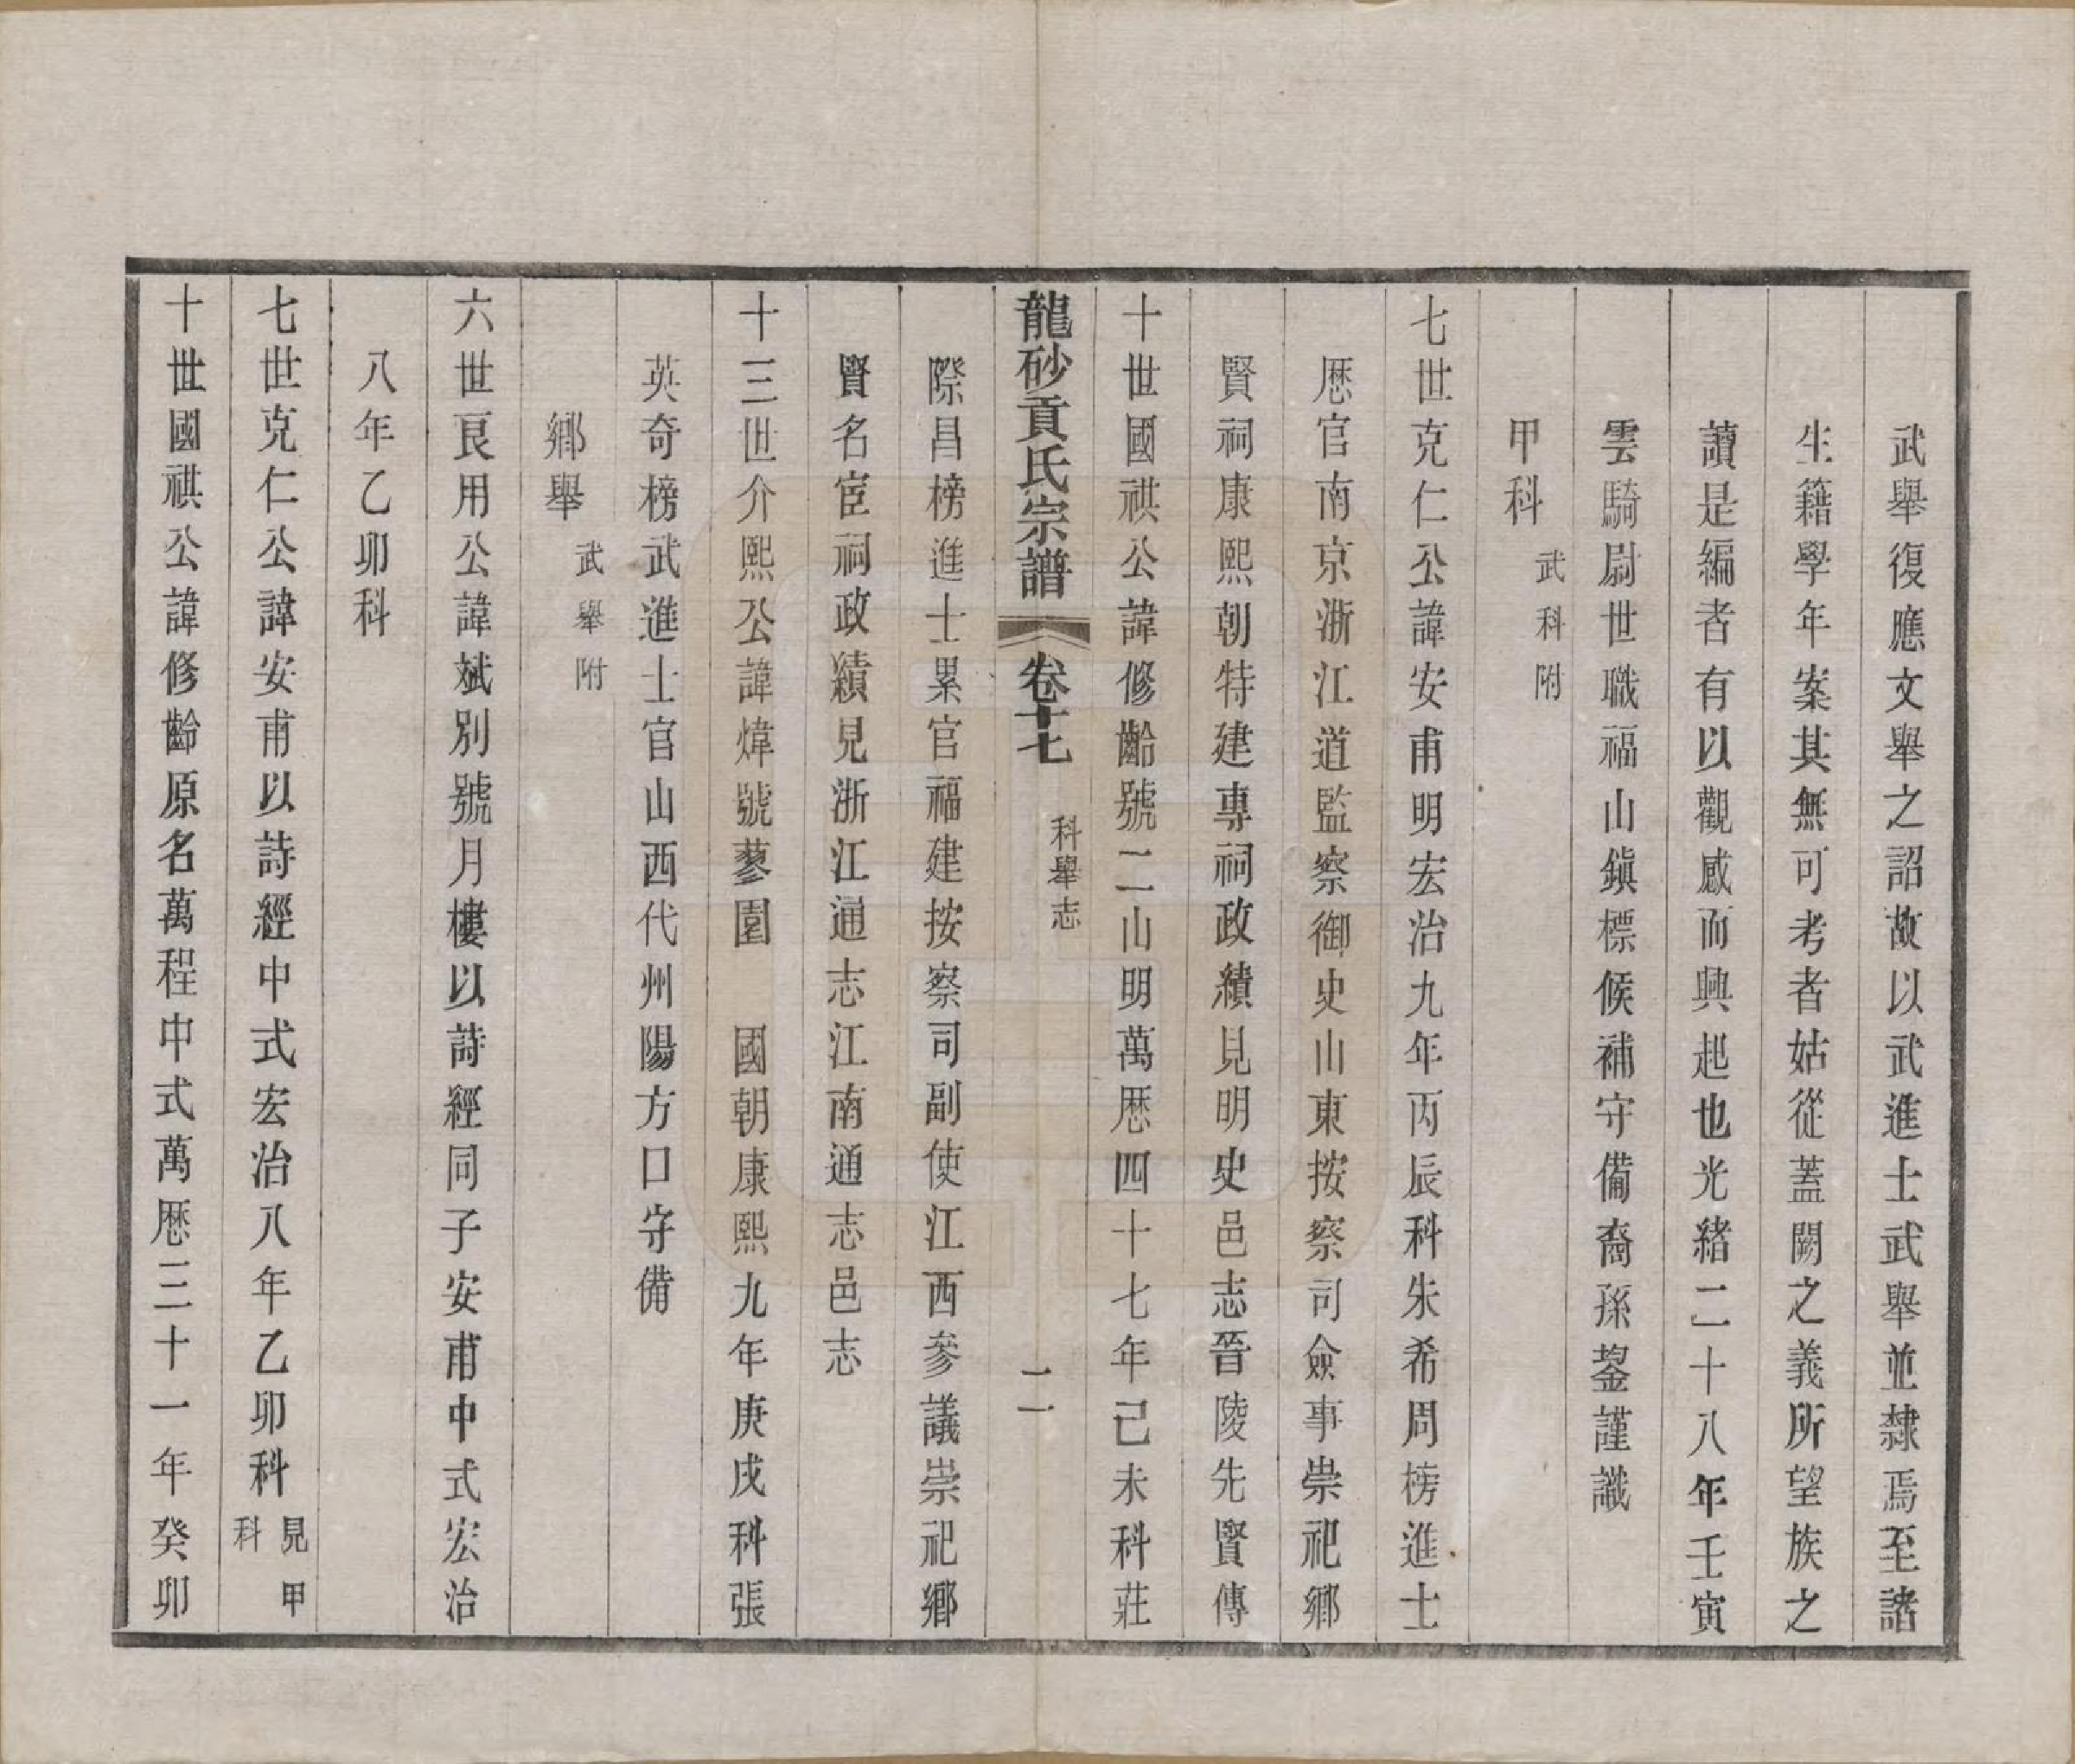 武舉復應文舉之詔故以武進士武舉並隸焉至諸
生籍學年案其無可考者姑從蓋闕之義所望族之
讀是編者有以觀感而興起也光緒二十八年壬寅
雲騎尉世職福山鎮標候補守備裔孫鋆謹識
甲科武科附
七世克仁公諱安甫明宏治九年丙辰科朱希周榜進士
歷官南京浙江道監察御史山東按察司僉事崇祀鄉
賢祠康熙朝特建專祠政績見明史邑志晉陵先賢傳
十世國祺公諱修齡號二山明萬歷四十七年己未科莊
龍砂貢氏宗譜 卷十七 科舉志 二
際昌榜進士累官福建按察司副使江西參議崇祀鄉
賢名宦祠政績見浙江通志江南通志邑志
十三世介熙公諱煒號蓼園 國朝康熙九年庚戌科張
英奇榜武進士官山西代州陽方口守備
鄉舉武舉附
六世艮用公諱斌別號月樓以詩經同子安甫中式宏治
八年乙卯科
七世克仁公諱安甫以詩經中式宏治八年乙卯科見甲科
十世國祺公諱修齡原名萬程中式萬歷三十一年癸卯